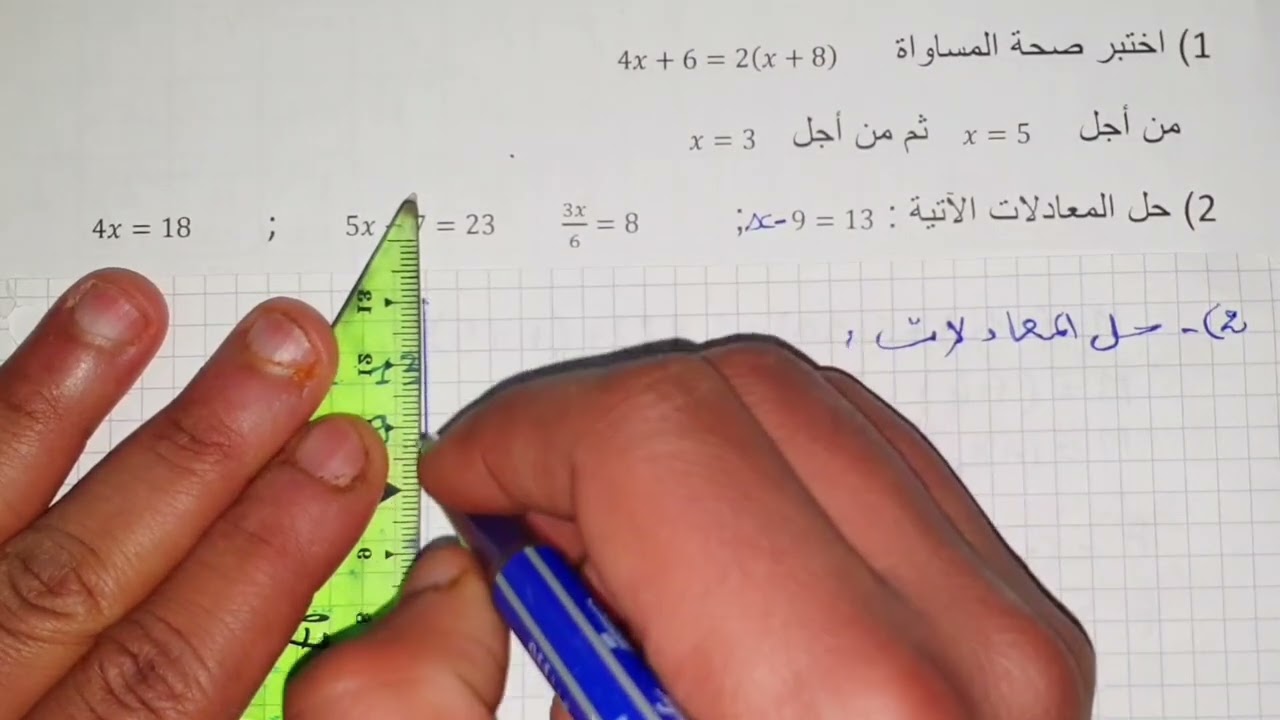 1) اختبر صحة المساواة 4x + 6 = 2(x + 8)
من أجل x = 5 ثم من أجل x = 3
2) حل المعادلات الآتية : x - 9 = 13; 3x/6 = 8 5x - 7 = 23 ; 4x = 18
2)- حل المعادلات :